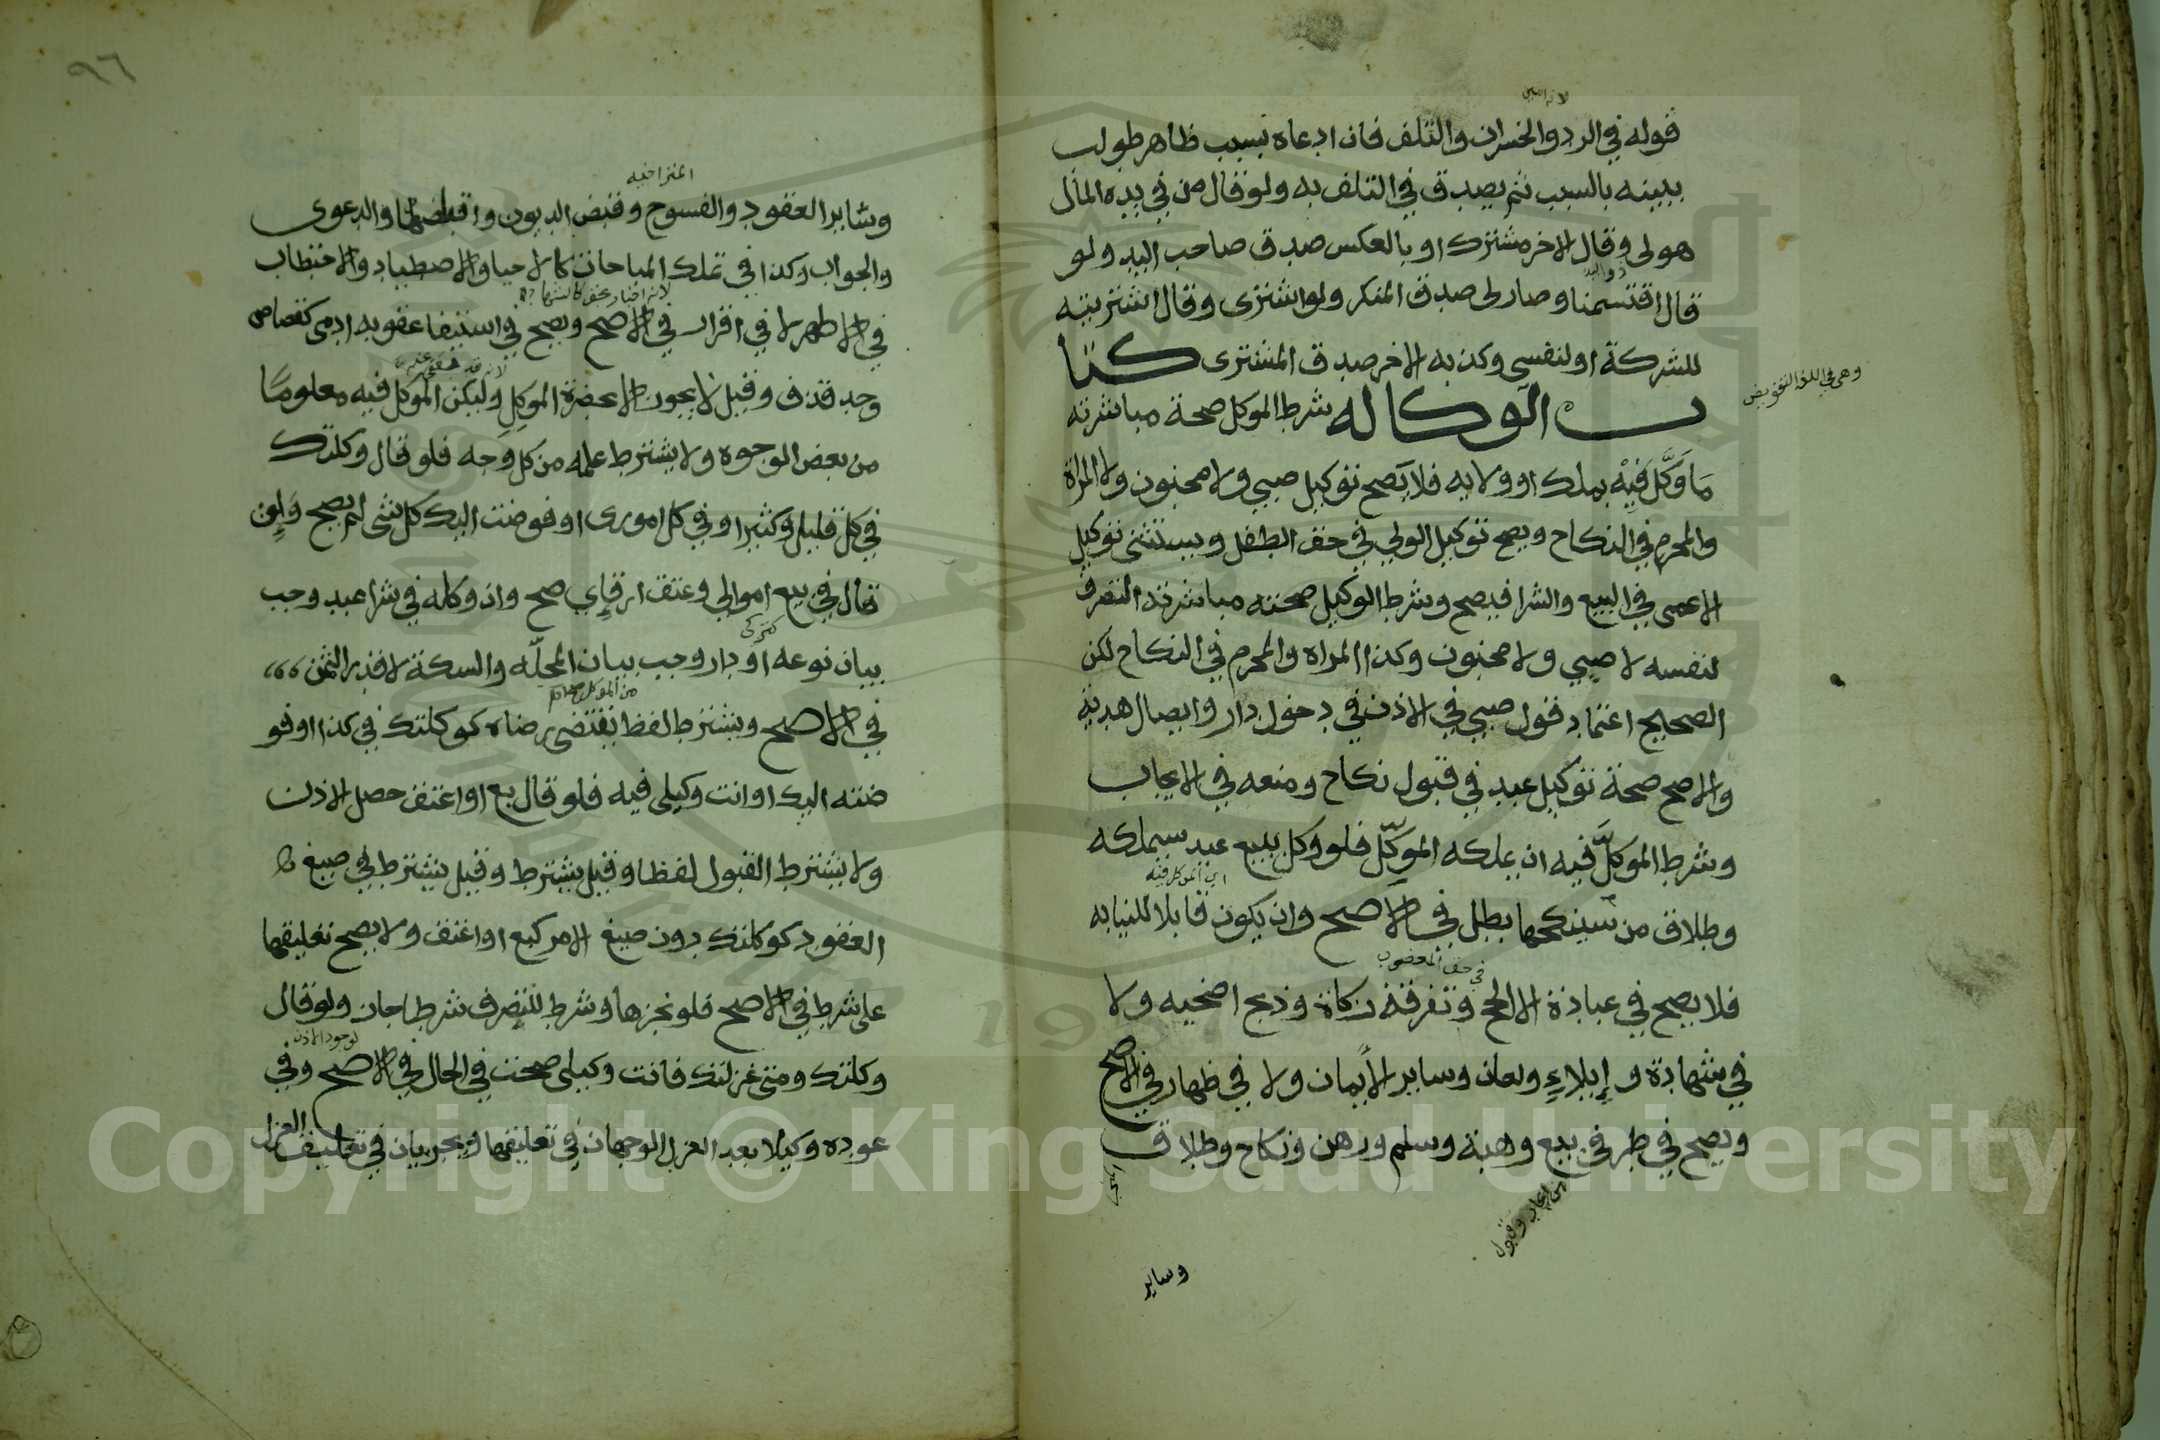 لانه امين
قوله في الرد والخسران والتلف فان ادعاه بسبب ظاهر طولب
ببينه بالسبب ثم يصدق في التلف به ولو قال من في يده المال
هو لى وقال الاخر مشترك او بالعكس صدق صاحب اليد ولو
ذو اليد
قال اقتسمنا وصار لى صدق المنكر ولو اشترى وقال اشتريته
للشركة او لنفسى وكذبه الاخر صدق المشترى كتا
وهى في اللغة التفويض
ب الوكاله شرط الموكل صحة مباشرته
مَا وَكَّل فِيْه بملك او ولايه فلا يَصح توكيل صبي ولا مجنون ولا المراة
والمحرم في النكاح ويصح توكيل الولي في حق الطفل ويستثنى توكيل
الاعمى في البيع والشرا فيصح وشرط الوكيل صحته مباشرته التصرف
لنفسه لا صبي ولا مجنون وكذا المراه والمحرم في النكاح لكن
الصحيح اعتماد قول صبي في الاذن في دخول دار وايصال هديه
والاصح صحة توكيل عبد في قبول نكاح ومنعه في الايجاب
وشرط الموكلَّ فيه ان يملكه الموَكِّل فلو وكل ببيع عبد سيملكه
اي الموكل فيه
وطلاق من سينكحها بطل في الاصح وان يكون قابلا للنيابه
في حق المعضوب
فلا يصح في عبادة الا الحج وتفرقة زكاة وذبح اضحيه ولا
في شهادة وإيلاءٍ ولعان وساير الأيمان ولا في ظهار في الاصح
ويصح في طرفي بيع وهبة وسلم ورهن ونكاح وطلاق
اى ايجاب وقبول
وساير
٩٦
المتراخيه
وساير العقود والفسوخ وقبض الديون واقباضها والدعوى
والجواب وكذا في تملك المباحات كالاحيا والاصطياد والاحتطاب
في الاظهر لا في اقرار في الاصح ويصح في استيفا عقوبه ادمى كقصاص
وحد قذف وقيل لا يجوز الا بحضرة الموكل وليكن الموكل فيه معلومًا
من بعض الوجوه ولا يشترط علمه من كل وَجه فلو قال وكلتك
في كل قليل وكثير او في كل امورى او فوضت اليك كل شى لم يصح وَاِن
قال في بيع اموالي وعتق ارقاي صح وان وكله في شرا عبد وجب
كتركى
بيان نوعه او دار وجب بيان المحلّه والسكة لا قدر الثمن
في الاصح ويشترط لفظ يقتضى رضاه كوكلتك في كذا او فو
ضته اليك او انت وكيلى فيه فلو قال بع او اعتق حصل الاذن
ولا يشترط القبول لفظا وقيل يشترط وقيل يشترط في صيغ
العقود كوكلتك دون صيغ الامر كبع او اعتق ولا يصح تعليقها
على شرط في الاصح فلو نجزها وشرط للتصرف شرطا جاز ولو قال
لوجود الاذن
وكلتك ومتى عزلتك فانت وكيلى صحت في الحال في الاصح وفي
عوده وكيلا بعد العزل الوجهان في تعليقها ويجريان في تعليق العزل
Copyright © King Saud University